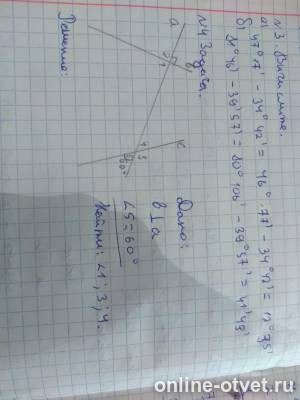 №3. Вычислите.
а) 47°17' - 34°42' = 46°77' - 34°42' = 12°35'
б) 81°46' - 39°57' = 80°106' - 39°57' = 41°49'
№4 Задача.
a
1
b
4
3
60°
к
Дано:
b⊥a
∠5=60°
Найти: ∠1; 3; 4.
Решение:
online-otvet.ru